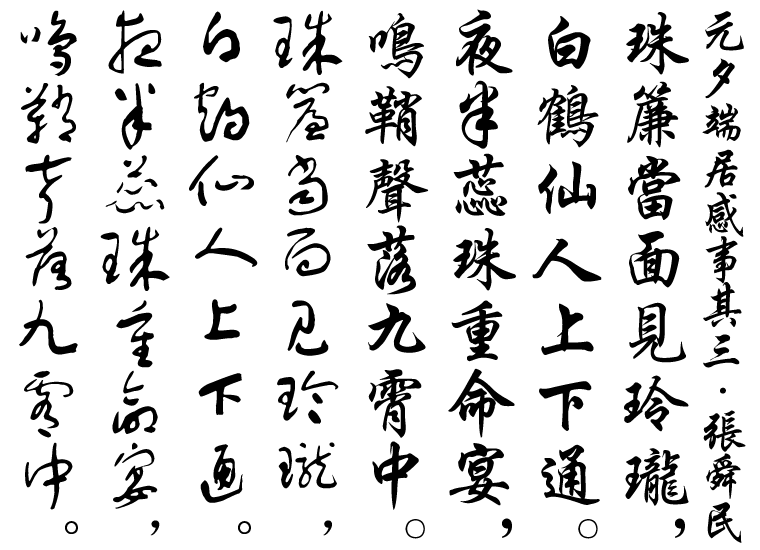 元夕端居感事其三·張舜民
珠簾當面見玲瓏，
白鶴仙人上下通。
夜半蕊珠重命宴，
鳴鞘聲落九霄中。
珠簾當面見玲瓏，
白鶴仙人上下通。
夜半蕊珠重命宴，
鳴鞘聲落九霄中。